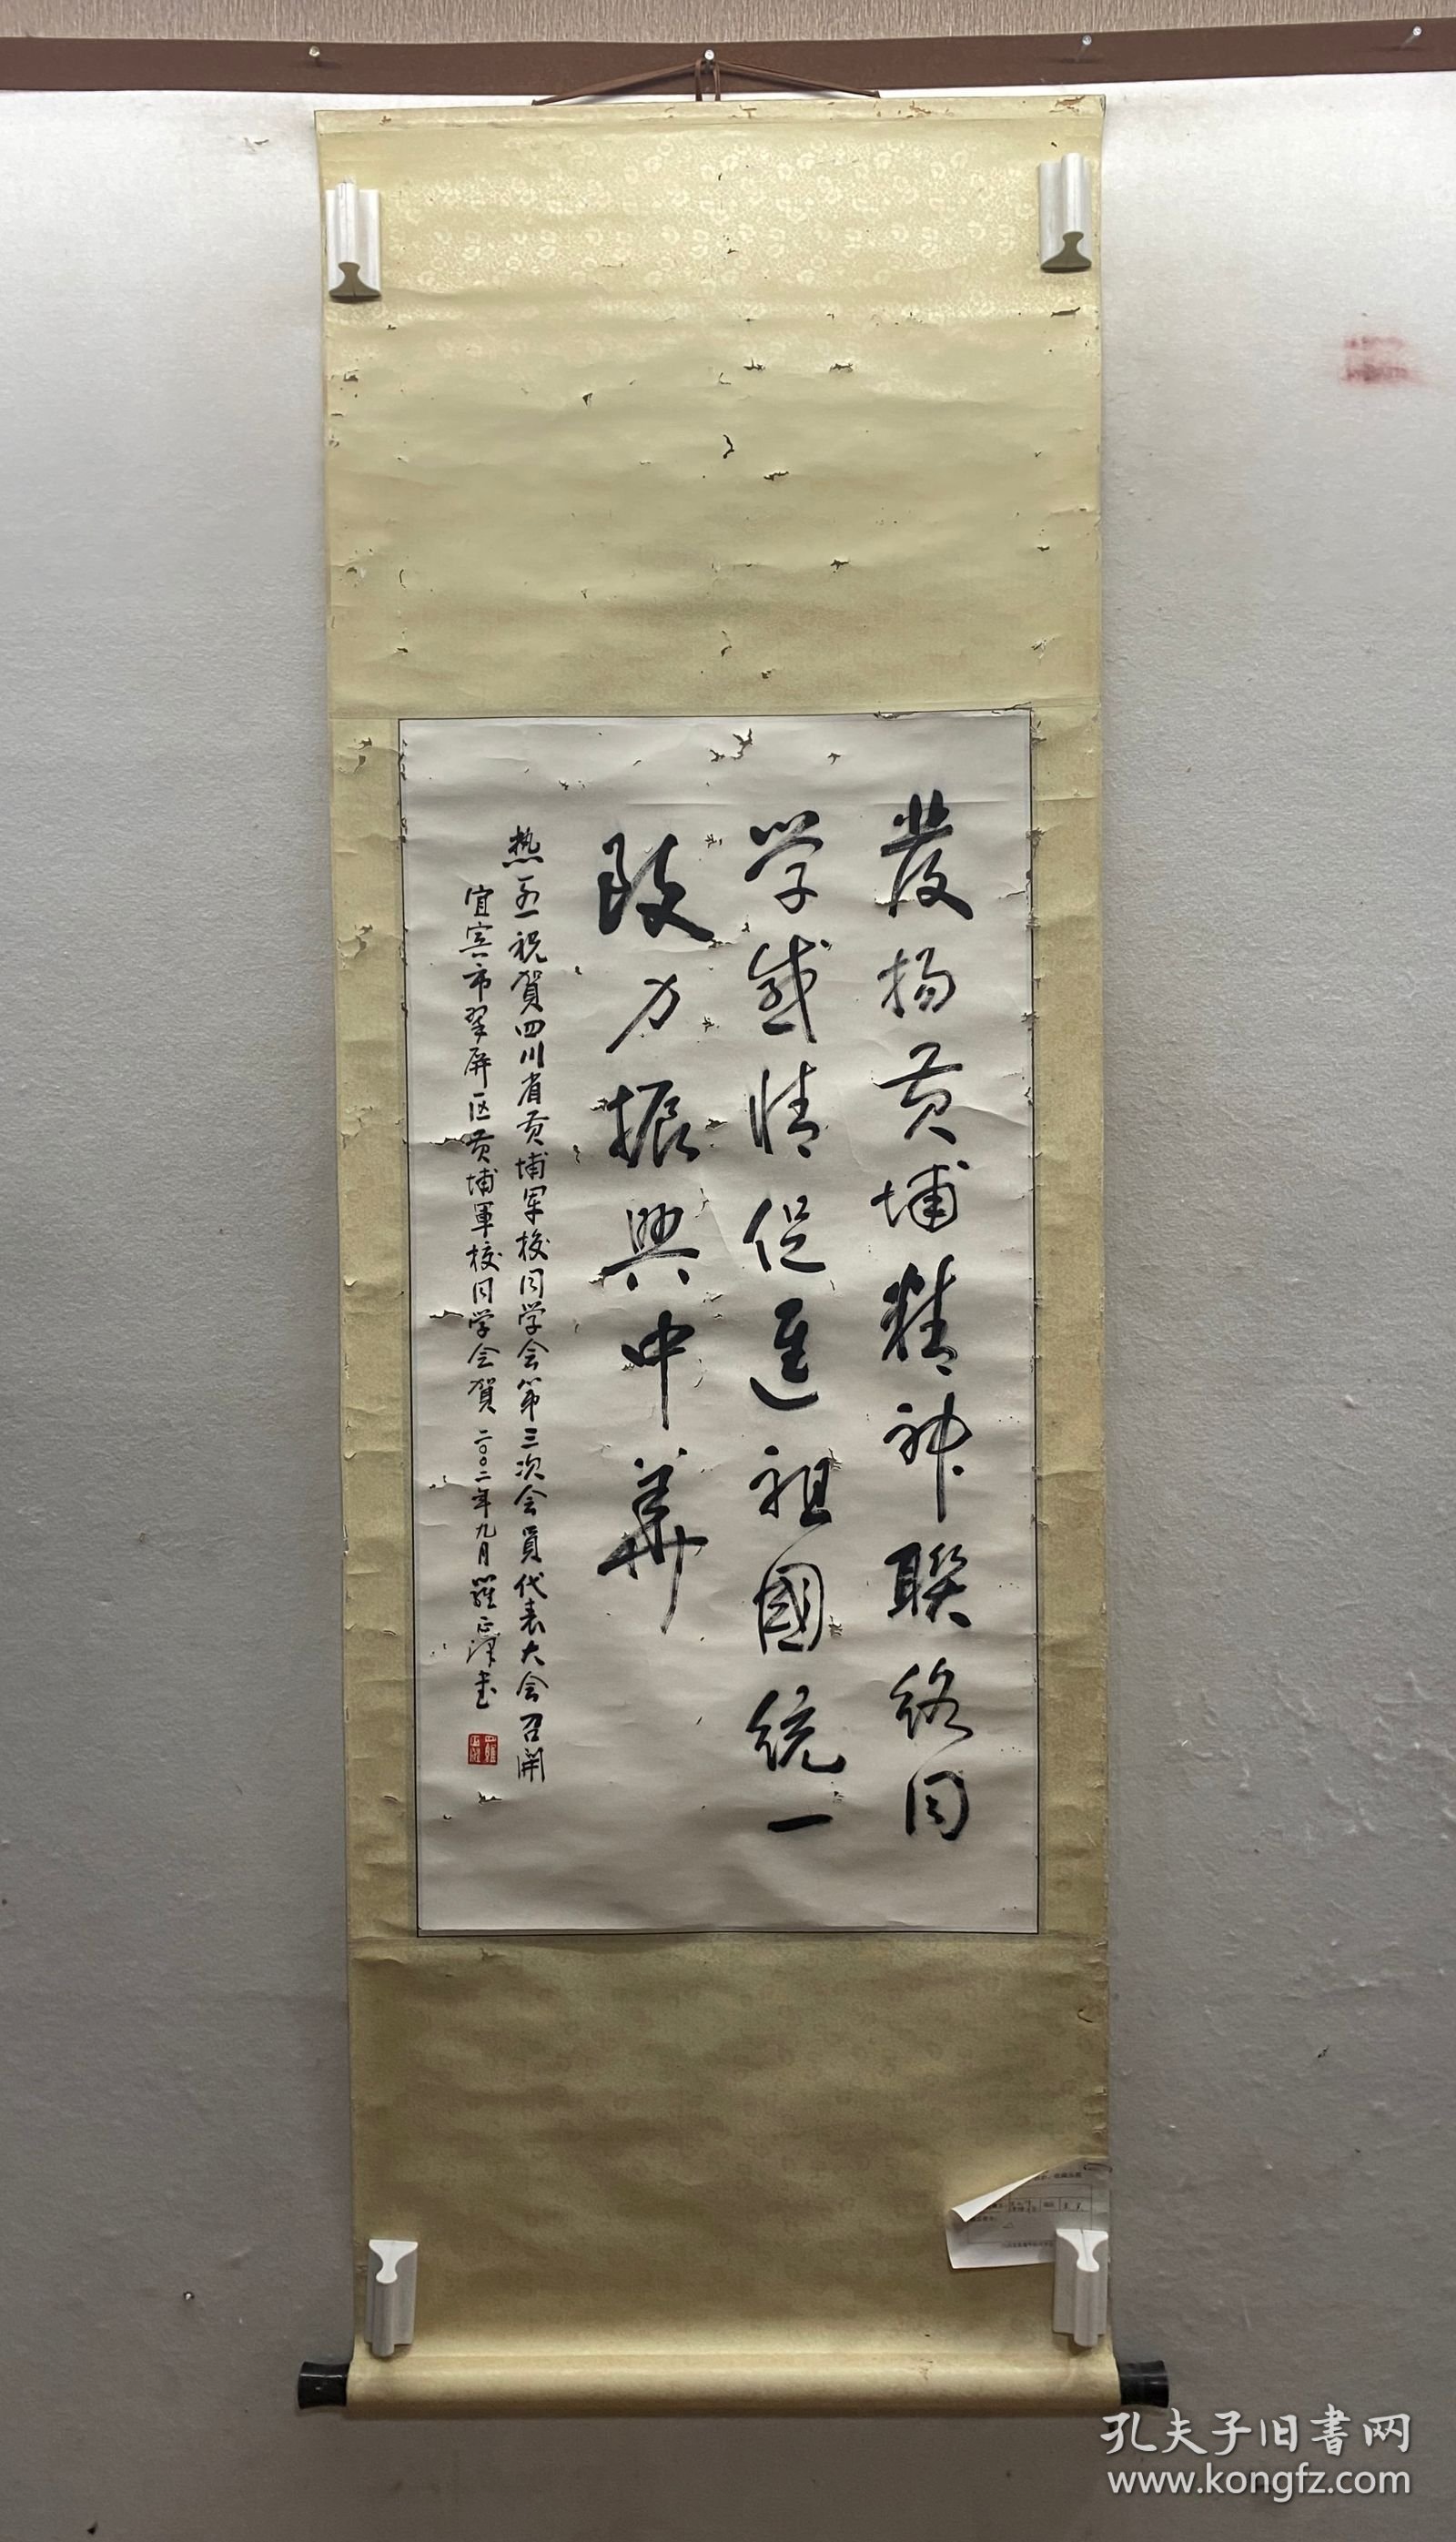 發扬黄埔精神聯络同
学感情促進祖國統一
致力振興中華
热烈祝賀四川省黄埔军校同学会第三次会員代表大会召開
宜宾市翠屏区黄埔軍校同学会賀 二〇〇二年九月 羅正泽书
孔夫子旧书网
www.kongfz.com